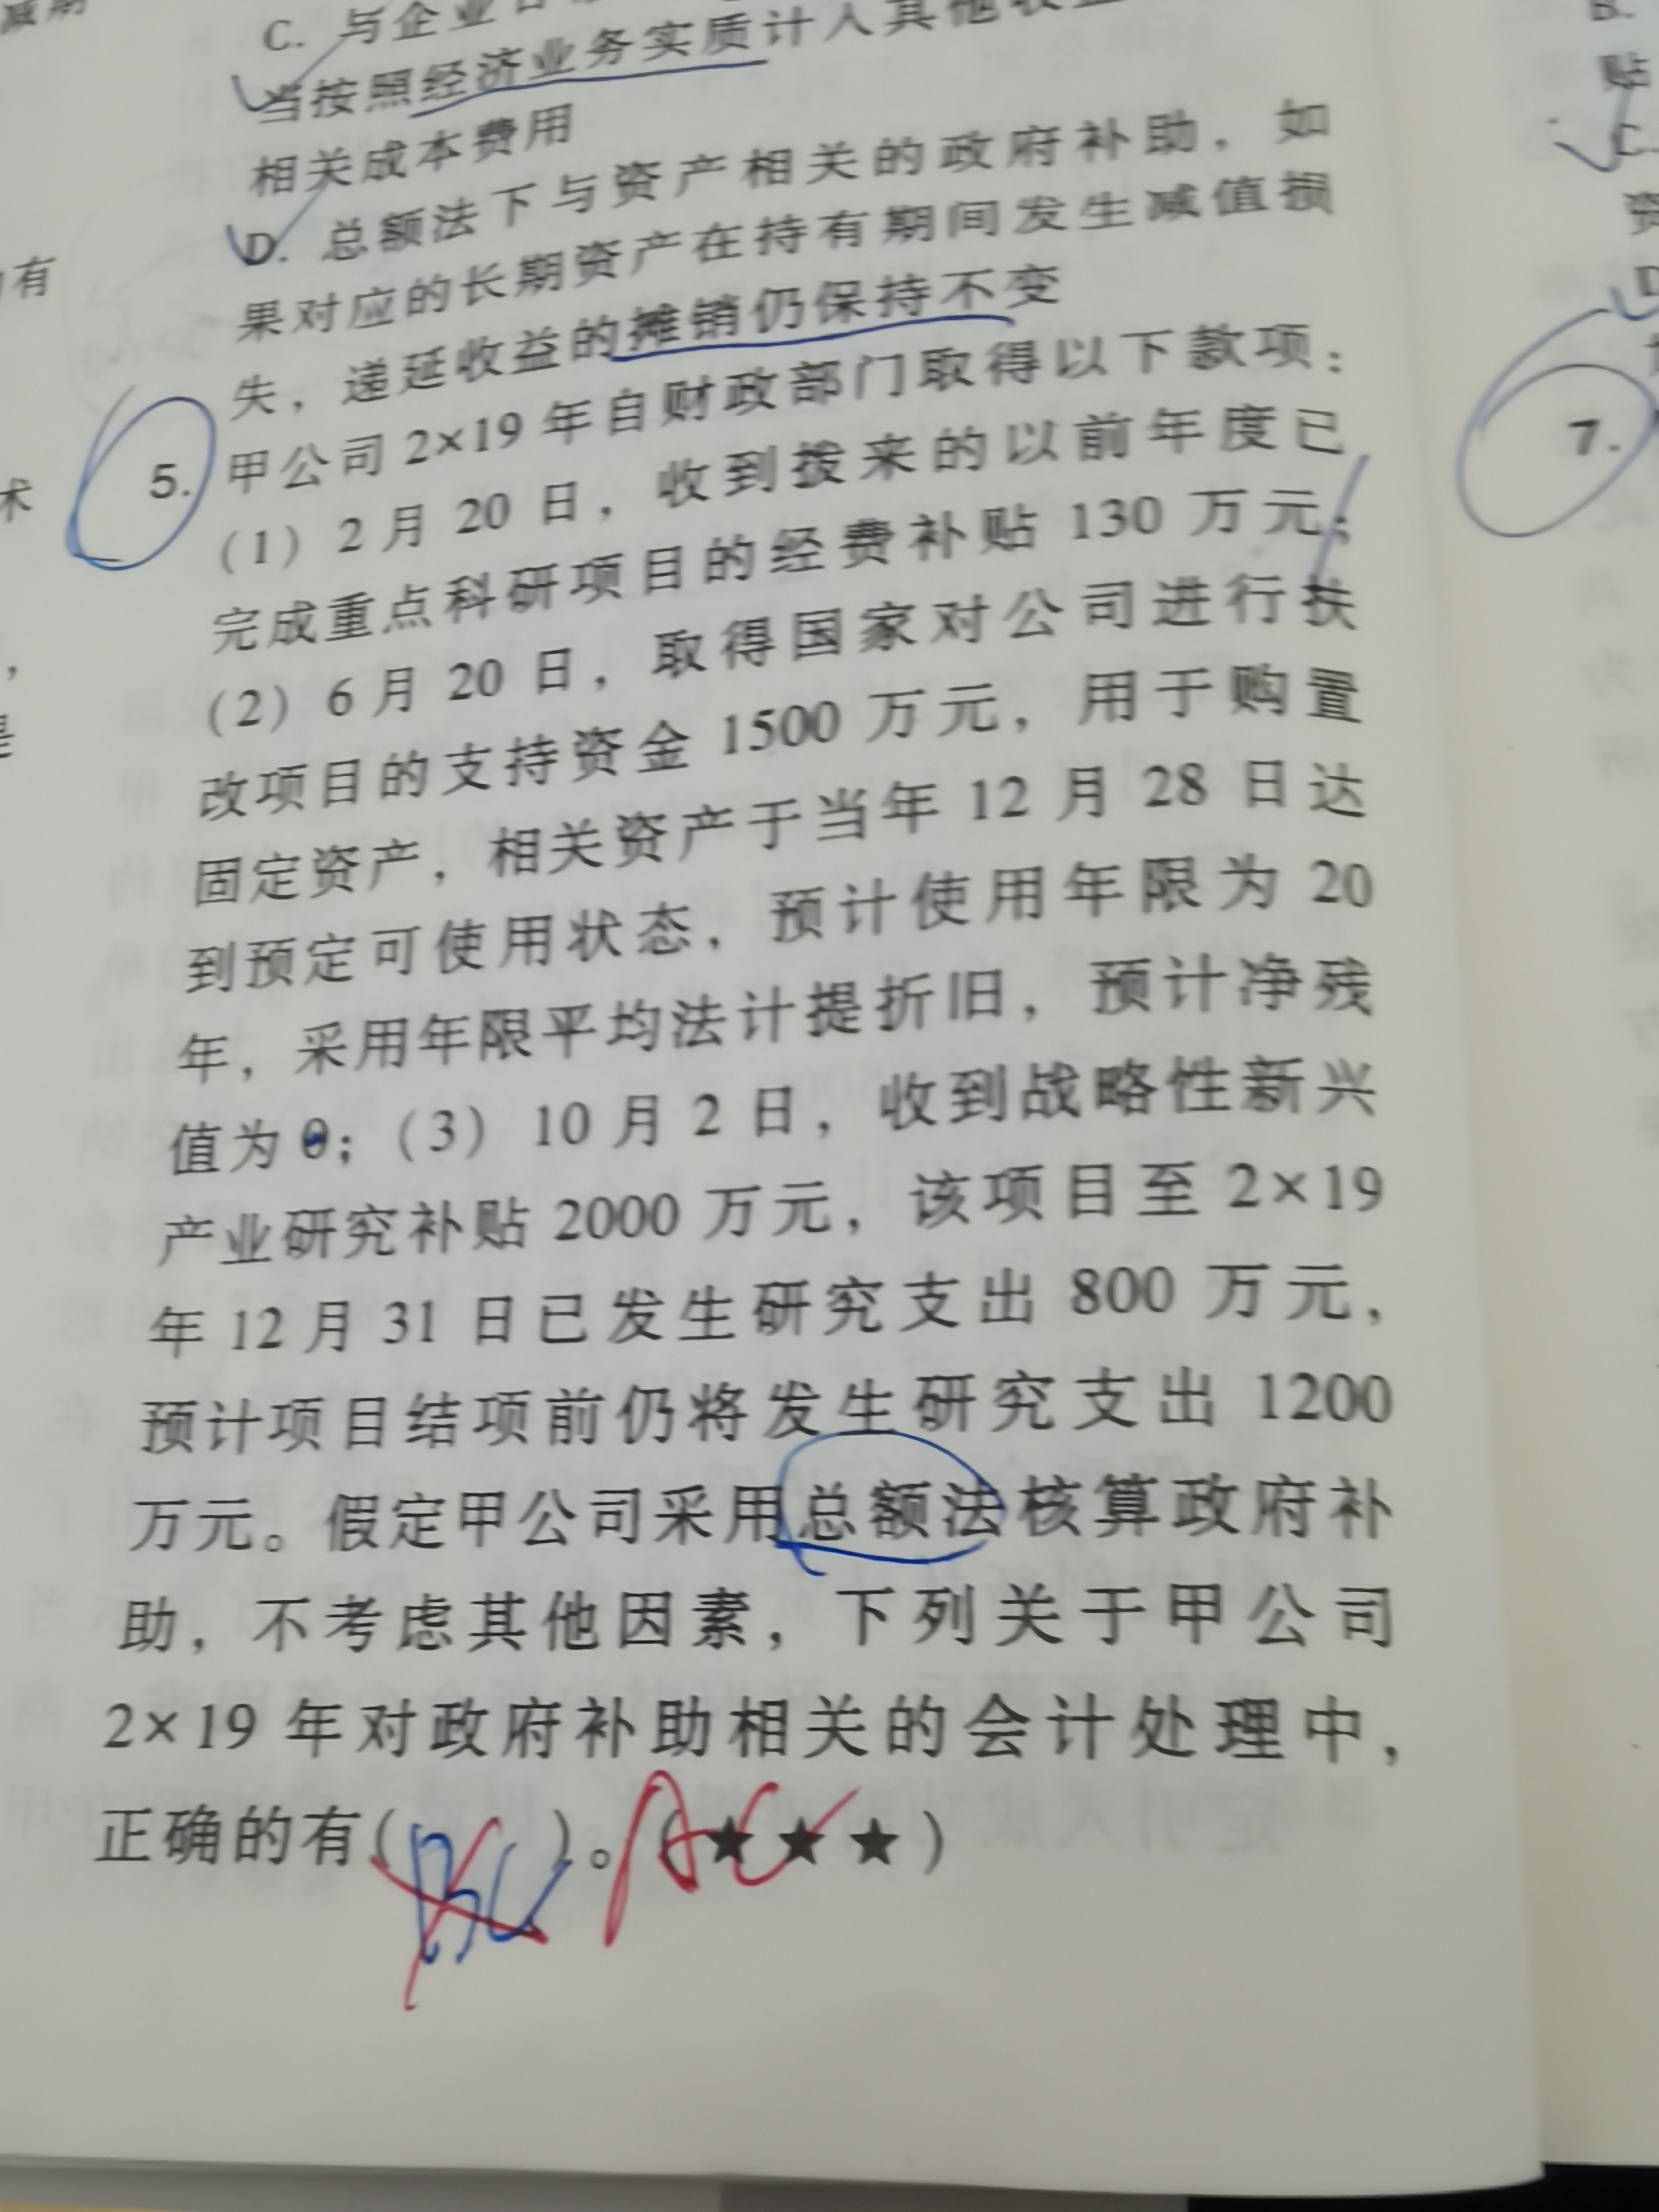 减期
C. 与企业日
当按照经济业务实质计入其他收益
相关成本费用
D. 总额法下与资产相关的政府补助，如
果对应的长期资产在持有期间发生减值损
失，递延收益的摊销仍保持不变
5. 甲公司 2×19 年自财政部门取得以下款项：
（1）2 月 20 日，收到拨来的以前年度已
完成重点科研项目的经费补贴 130 万元；
（2）6 月 20 日，取得国家对公司进行扶
改项目的支持资金 1500 万元，用于购置
固定资产，相关资产于当年 12 月 28 日达
到预定可使用状态，预计使用年限为 20
年，采用年限平均法计提折旧，预计净残
值为 0；（3）10 月 2 日，收到战略性新兴
产业研究补贴 2000 万元，该项目至 2×19
年 12 月 31 日已发生研究支出 800 万元，
预计项目结项前仍将发生研究支出 1200
万元。假定甲公司采用总额法核算政府补
助，不考虑其他因素，下列关于甲公司
2×19 年对政府补助相关的会计处理中，
正确的有（ ）。（★★★）
AC
有
术
是
B.
贴
C.
资
D
7.